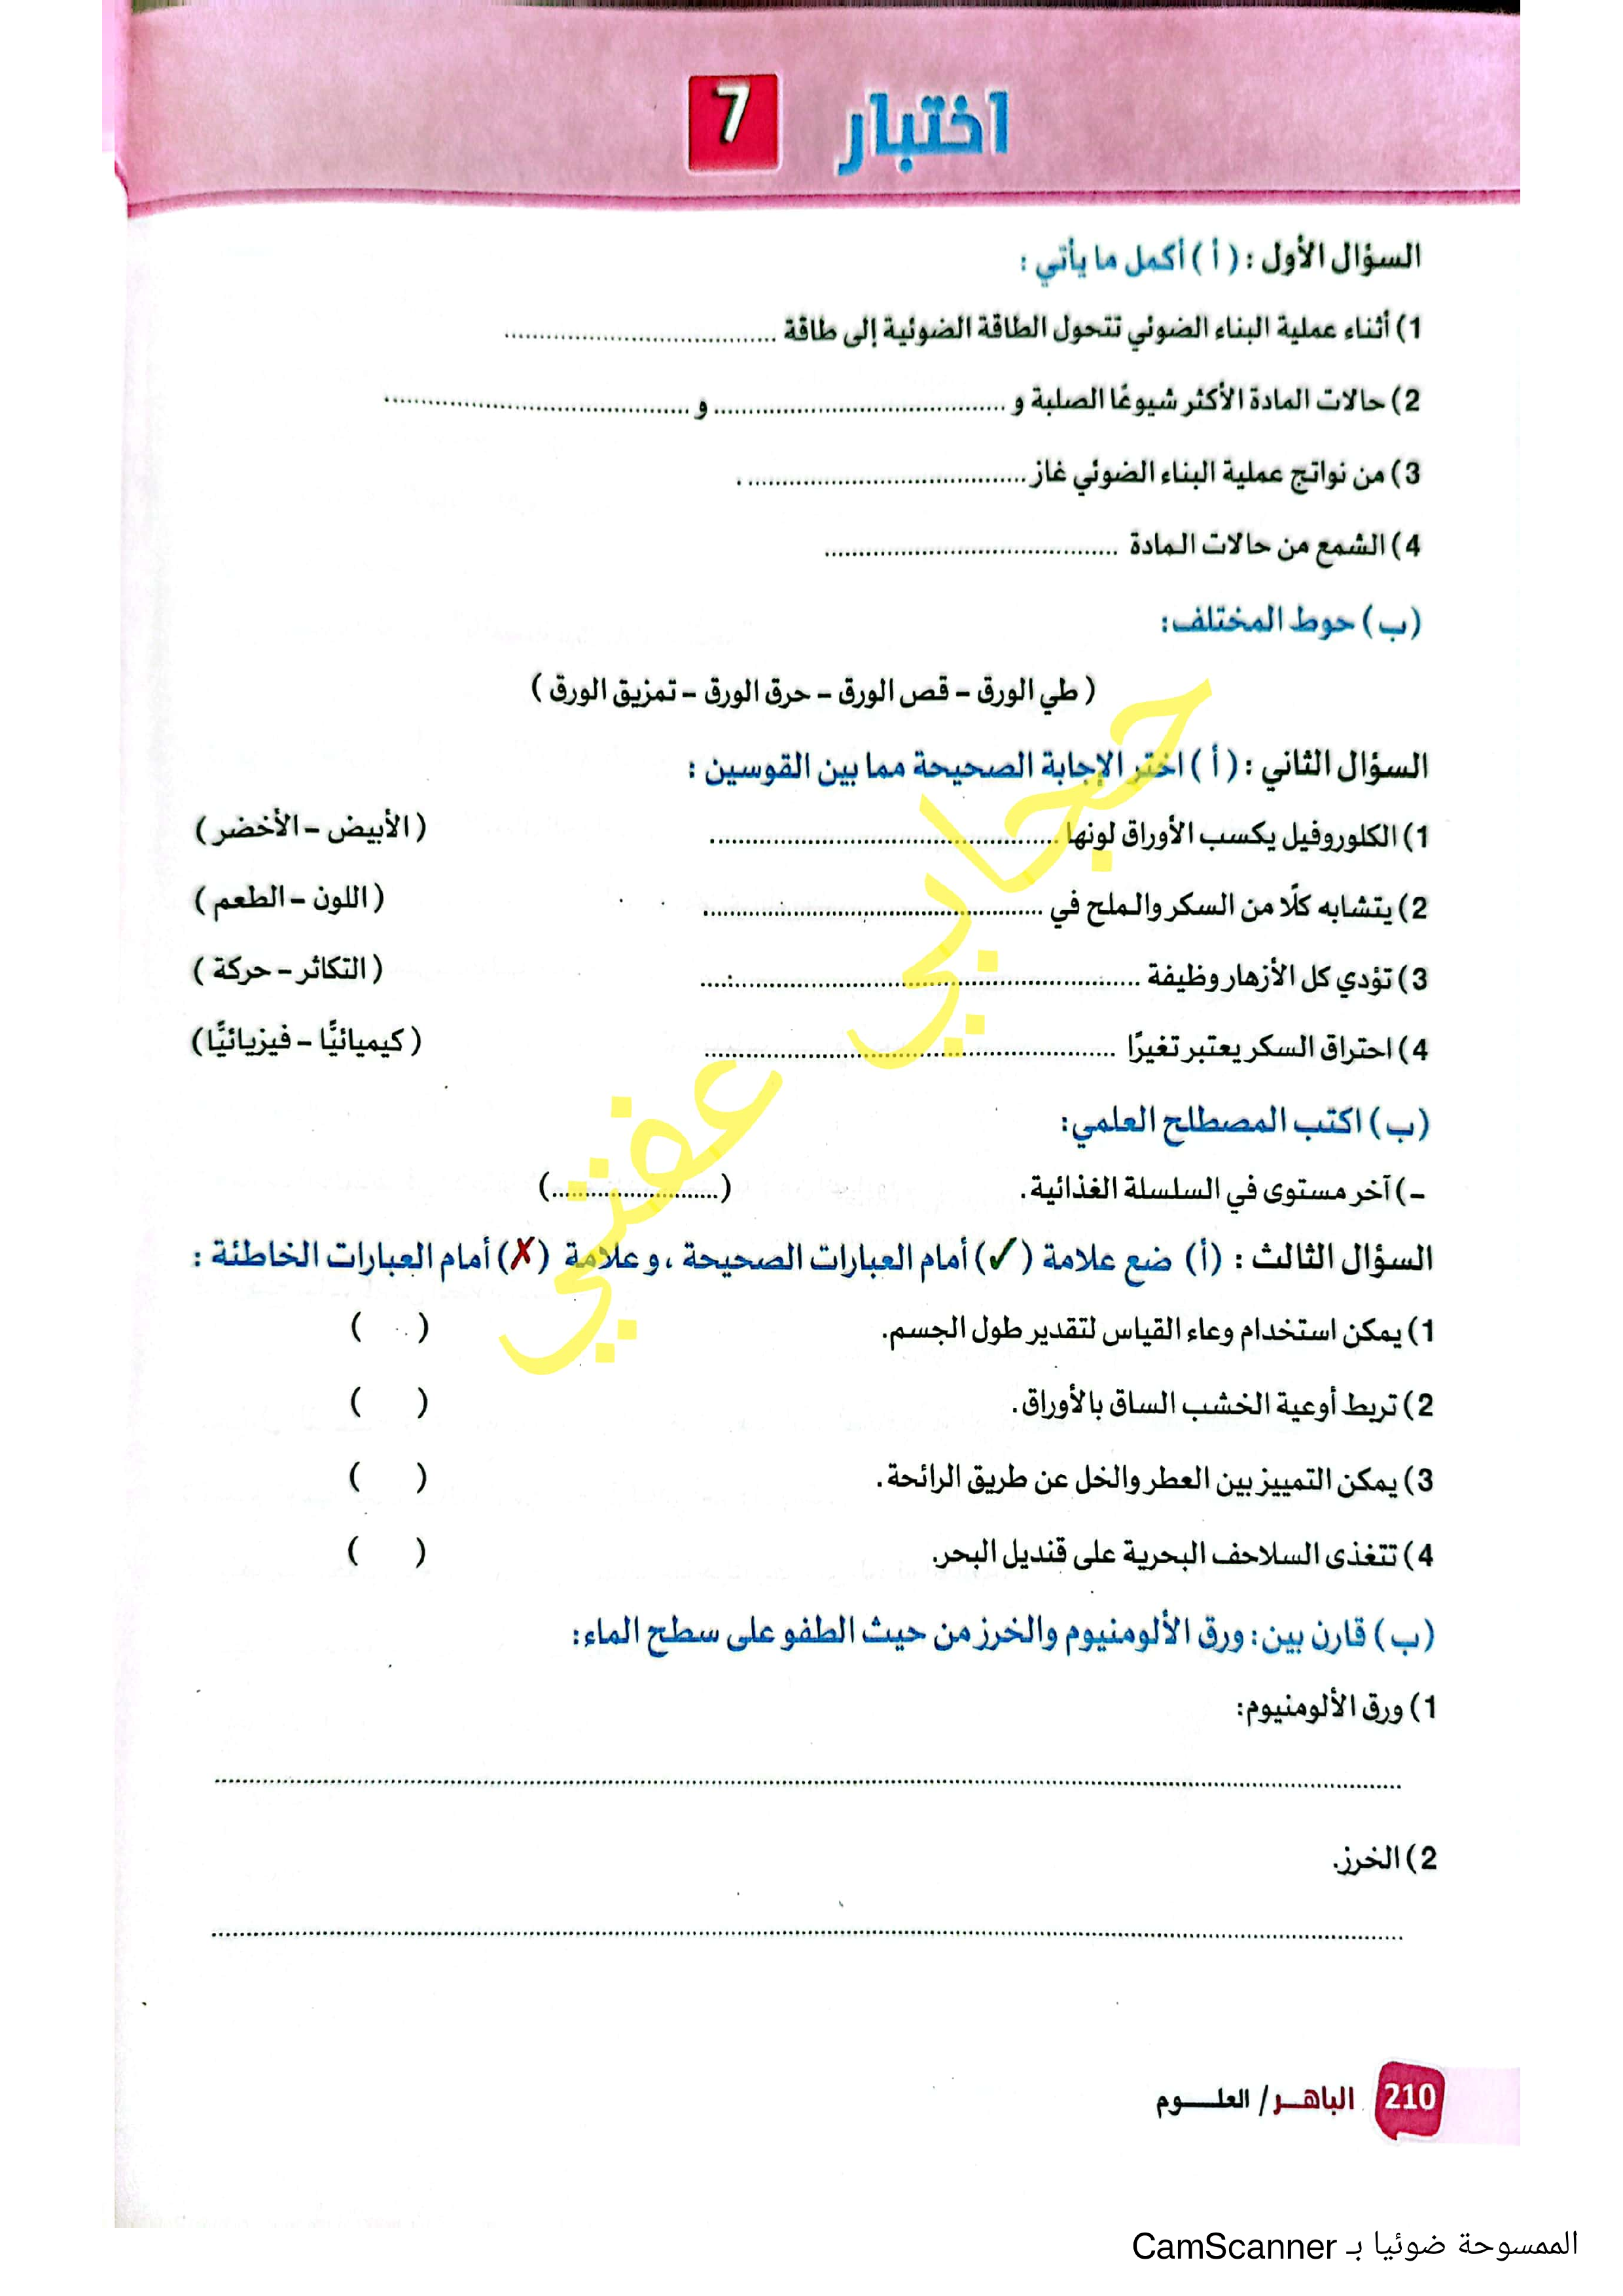 اختبار 7
السؤال الأول : ( أ ) أكمل ما يأتي :
1) أثناء عملية البناء الضوئي تتحول الطاقة الضوئية إلى طاقة ......................................
2) حالات المادة الأكثر شيوعًا الصلبة و ......................................... و .........................................
3) من نواتج عملية البناء الضوئي غاز ...................................... .
4) الشمع من حالات المادة .........................................
(ب) حوط المختلف:
( طي الورق – قص الورق – حرق الورق – تمزيق الورق )
السؤال الثاني : ( أ ) اختر الإجابة الصحيحة مما بين القوسين :
1) الكلوروفيل يكسب الأوراق لونها ......................................... ( الأبيض – الأخضر )
2) يتشابه كلًا من السكر والملح في ......................................... ( اللون – الطعم )
3) تؤدي كل الأزهار وظيفة ......................................... ( التكاثر – حركة )
4) احتراق السكر يعتبر تغيرًا ......................................... ( كيميائيًّا – فيزيائيًّا )
(ب) اكتب المصطلح العلمي:
-) آخر مستوى في السلسلة الغذائية. (........................)
السؤال الثالث : (أ) ضع علامة (✓) أمام العبارات الصحيحة ، و علامة (✗) أمام العبارات الخاطئة :
1) يمكن استخدام وعاء القياس لتقدير طول الجسم. ( )
2) تربط أوعية الخشب الساق بالأوراق. ( )
3) يمكن التمييز بين العطر والخل عن طريق الرائحة. ( )
4) تتغذى السلاحف البحرية على قنديل البحر. ( )
(ب) قارن بين: ورق الألومنيوم والخرز من حيث الطفو على سطح الماء:
1) ورق الألومنيوم:
2) الخرز.
210 الباهـر/ العلـــوم
حجابي عفتي
الممسوحة ضوئيا بـ CamScanner